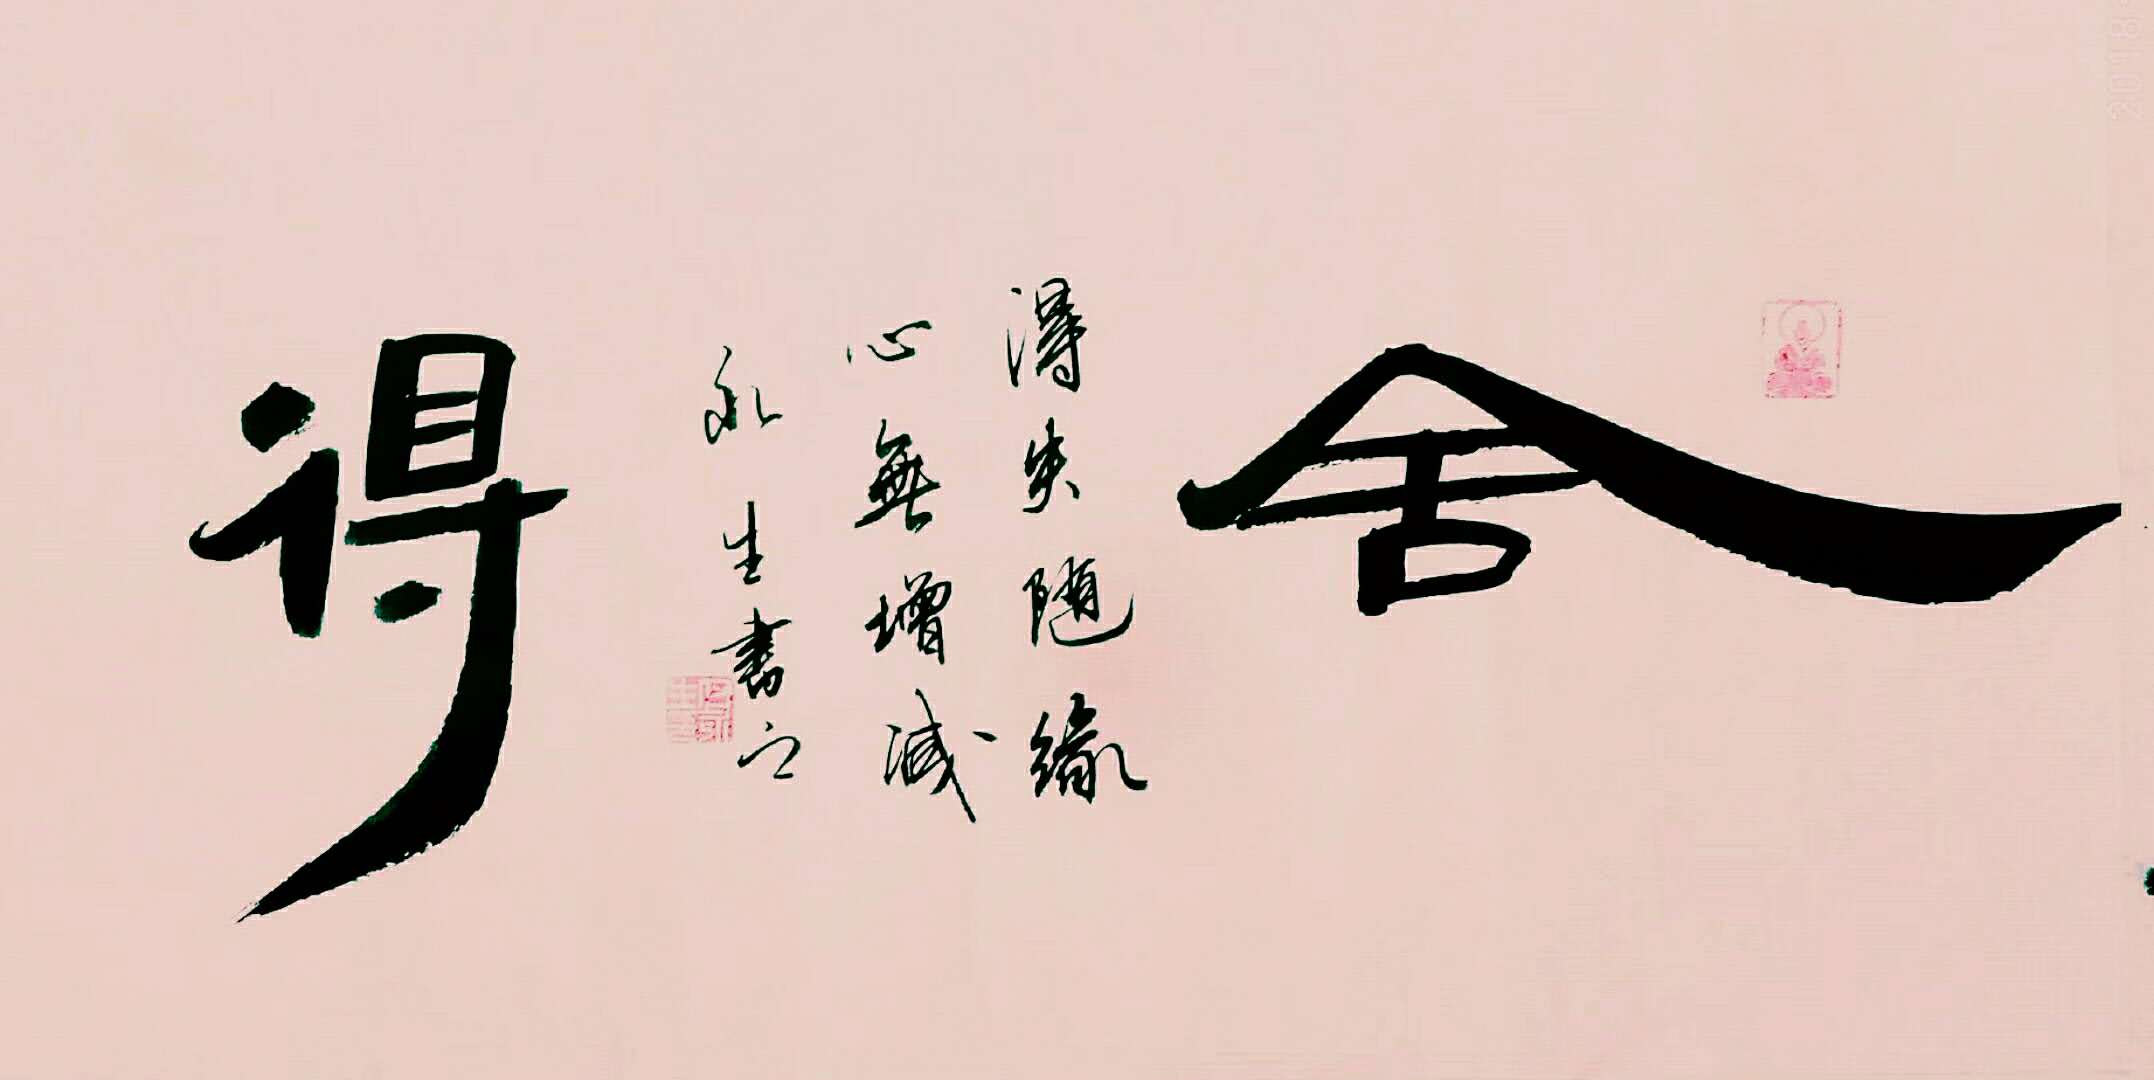 舍
得失随缘
心無增減
永生書之
得
2018